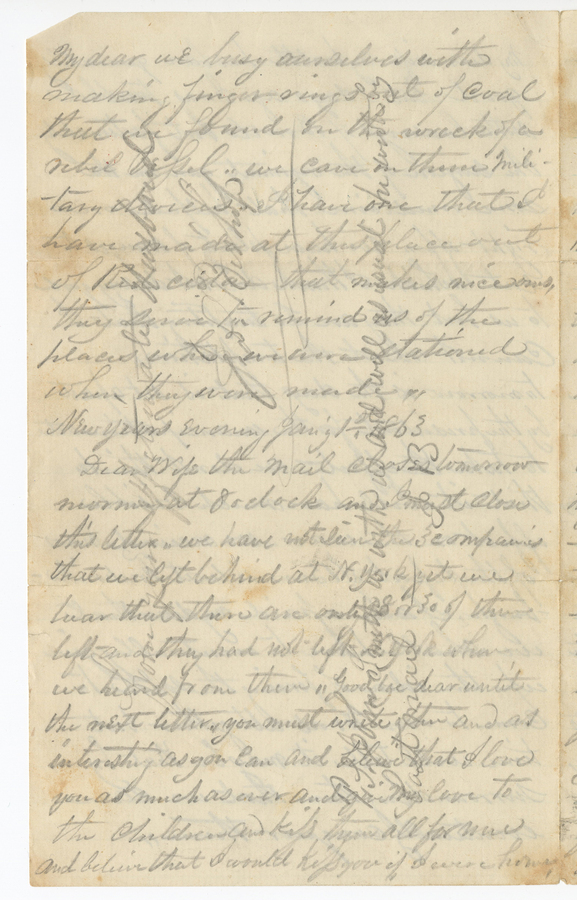 My dear we busy ourselves with
making finger rings out of coal
that we found on the wreck of a
rebil vessel,, we carve on them mili-
tary devices,, I have one that I
have made at this place out
of Red cedar that makes nice ones,
they serve to remind us of the
places where we were stationed
when they were made,,
New Years evening Jany 1st 1863
Dear Wife the mail closes tomorrow
morning at 8 oclock and I must close
this letter,, we have not seen the 3 companies
that we left behind at N. York yet we
hear that there are only 8 or 30 of them
left and they had not left N York when
we heard from them,, Good bye dear until
the next letter,, you must write often and as
interesting as you can and believe that I love
you as much as ever and give my love to
the children and kiss them all for me
and believe that I would kiss you if I were home
from your affectionate Husband